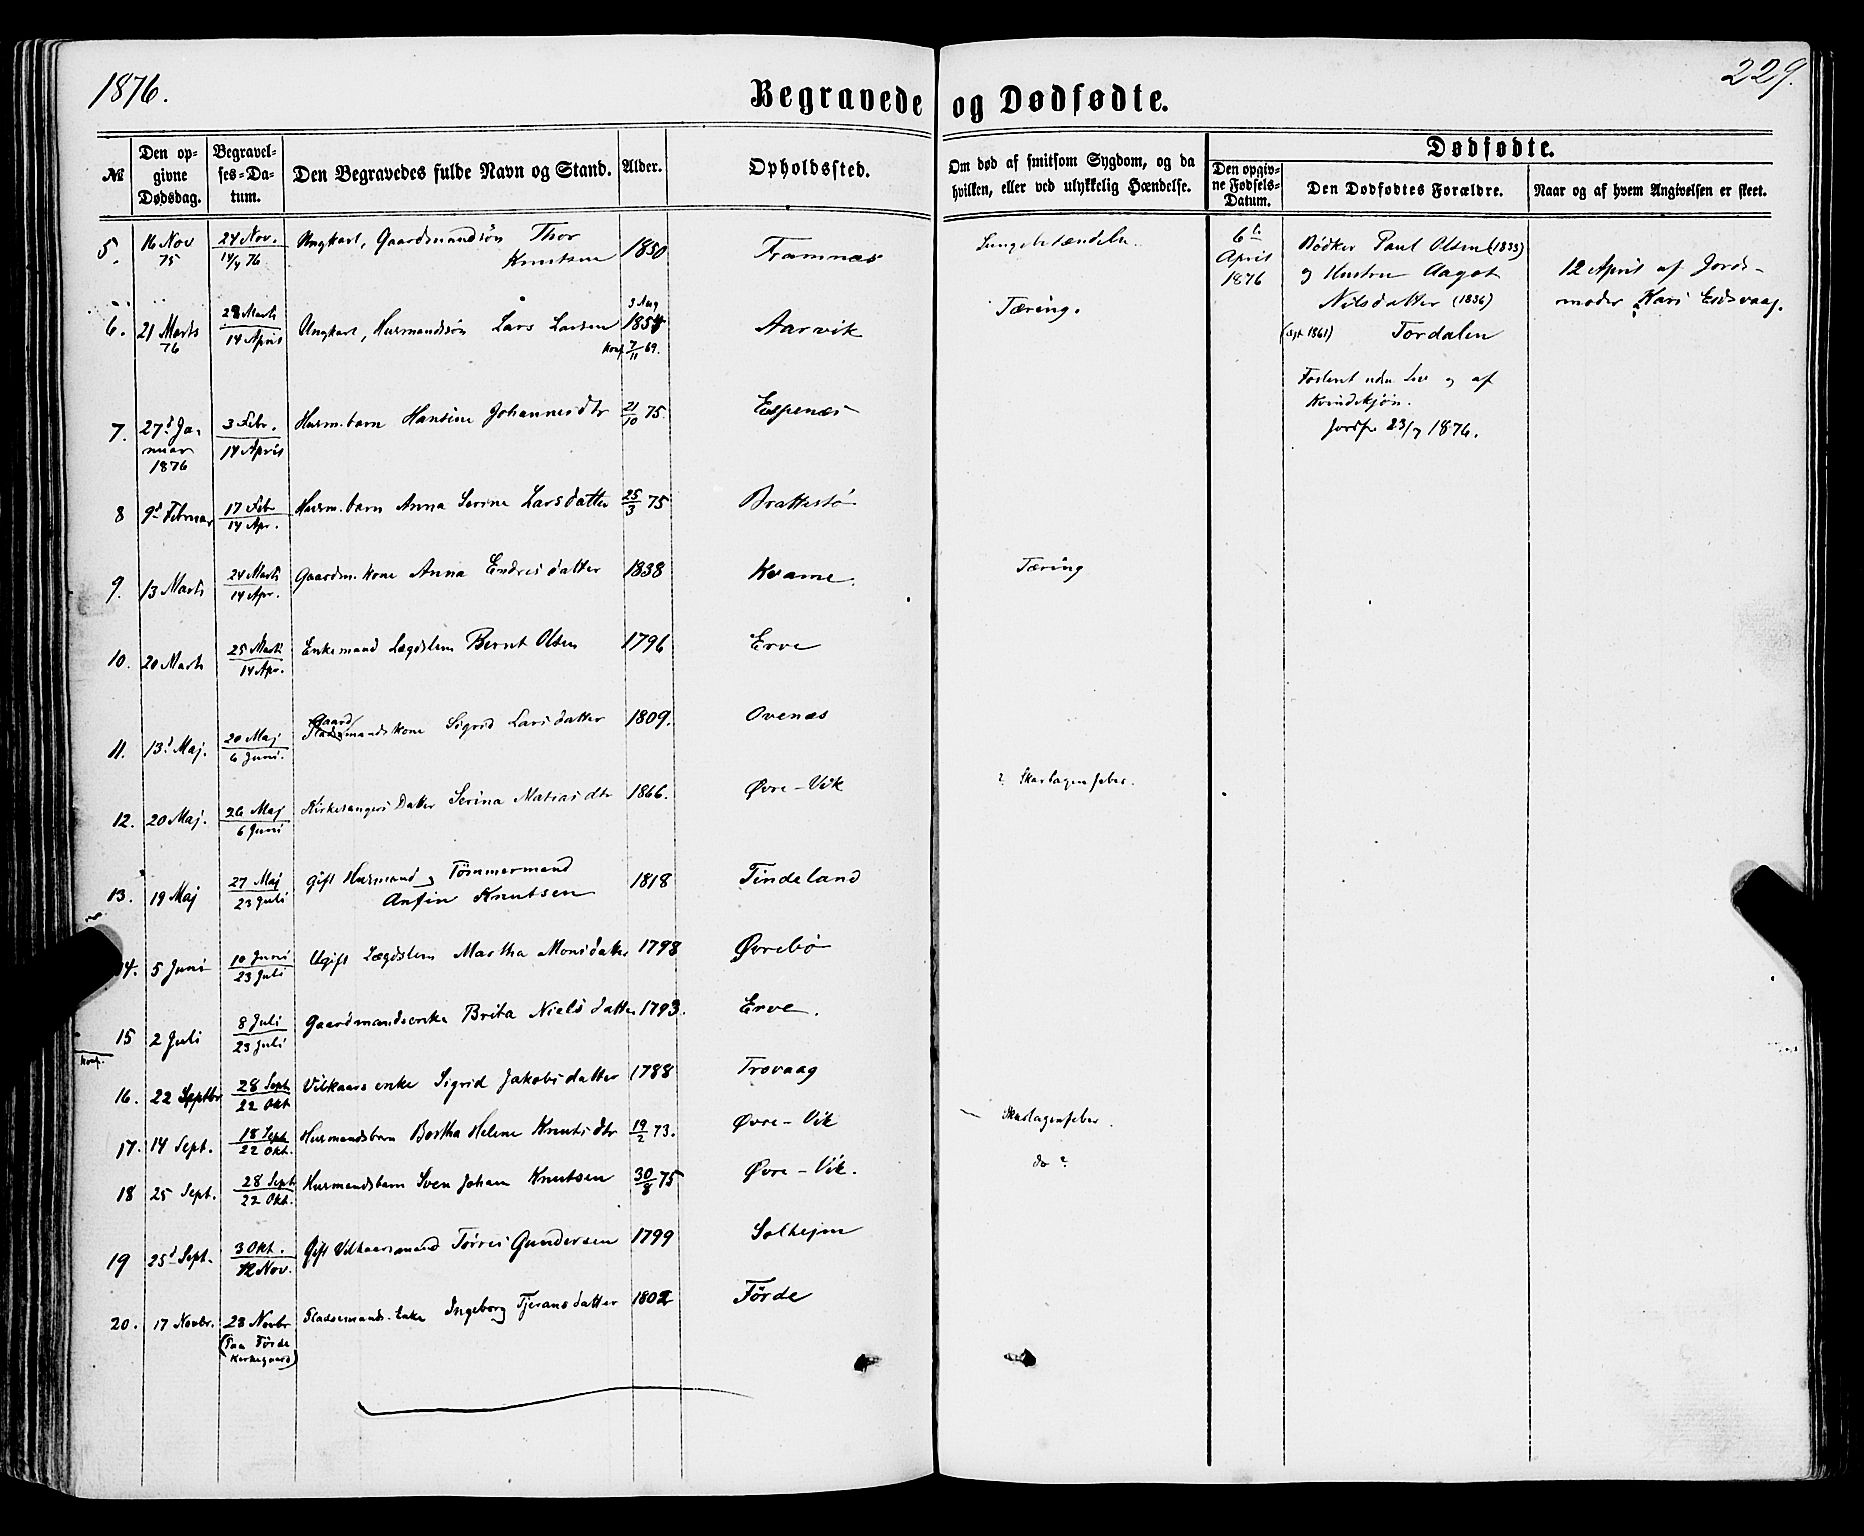 1876.
229.
Begravede og Dødfødte.
№
Den opgivne Dødsdag.
Begravelses-Datum.
Den Begravedes fulde Navn og Stand.
Alder.
Opholdssted.
Om død af smitsom Sygdom, og da hvilken, eller ved ulykkelig Hændelse.
Dødfødte.
Den opgivne Fødsels-Datum.
Den Dødfødtes Forældre.
Naar og af hvem Angivelsen er skeet.
5. 16 Nov 75 24 Nov. 14/4 76 Ungkarl, Gaardmandssøn Thor Knutsen 1850 Framnæs Lungebetændelse.
6. 21 Marts 76 28 Marts 14 April Ungkarl, Husmandssøn Lars Larsen 3 Aug 1854 Konf. 7/11 69. Aarvik Tæring.
7. 27d Januar 1876 3 Febr. 14 April Husm. barn Hansine Johannesdtr 21/10 75. Espenæs
8 9d Februar 17 Feb 14 Apr. Husm. barn Anna Serine Larsdatter 25/3 75 Brattestø
9. 13 Marts 24 Marts 14 Apr. Gaardm. Kone Anna Endresdatter 1838 Kvame. Tæring
10. 20 Marts 25 Marts 14 Apr. Enkemand Lægdslem Bernt Olsen 1796 Erve
11. 13d Maj. 20 Maj 6 Juni. Gaardmandskone Sigrid Larsdatter 1809. Ovenæs
12. 20 Maj. 26 Maj 6 Juni Kirkesangers Datter Serina Matiasdtr 1866. Øvre-Vik ? Skarlagensfeber.
13. 19 Maj 27 Maj 23 Juli Gift Husmand og Tømmermand Anfin Knutsen 1818 Tindeland
14. 5 Juni 10 Juni 23 Juli Ugift Lægdslem Martha Monsdatter 1798 Øvrebø
15 2 Juli 8 Juli 23 Juli Gaardmandsenke Brita Nielsdatter 1793. Erve.
16. 22 Septbr 28 Sept. 22 Okt Vilkaarsenke Sigrid Jakobsdatter 1788 Trovaag
17. 14 Sept. 18 Sept 22 Okt. Husmandsbarn Bertha Helene Knutsdtr 19/2 73. Øvre-Vik Skarlagensfeber.
18 25 Sept. 28 Sept 22 Okt. Husmandsbarn Sven Johan Knutsen 30/8 75 Øvre-Vik. do ?
19 25d Sept. 3 Okt. 12 Nov. Gift Vilkaarsmand Tørres Gundersen 1799 Solhejm
20. 17 Novbr. 23 Novbr (Paa Førde Kirkegaard) Pladsemands Enke Ingeborg Tjeransdatter 1802 Førde
6te April 1876
Bødker Paul Olsen (1833)
og Hustru Aagot
Nilsdatter (1836)
Tordalen
Fosteret uden Liv og af
Kvindekjøn.
Jordf. 23/7 1876.
12 April af Jord-
moder Kari Eidsvaag.